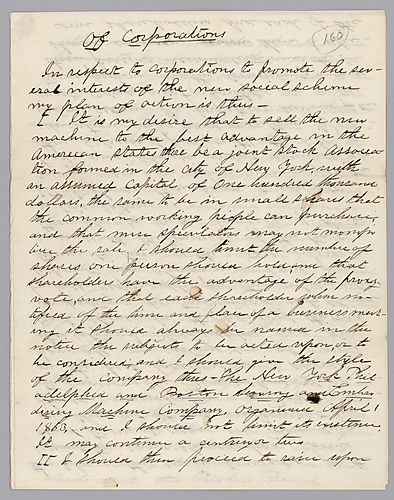 Of Corporations
160
In respect to corporations to promote the sev-
eral interests of the new social scheme
my plan of action is thus—
I It is my desire that to sell the new
machine to the best advantage in the
American States that be a joint stock associa
tion formed in the City of New York, with
an assumed capital of One hundred thousand
dollars, the same to be in small shares that
the common working people can purchase,
and that mere speculators may not monop-
the sale I should limit the number of
shares one person should hold and that
shareholders have the advantage of the proxy
vote, and that each shareholder when no-
tified of the time and place of a business meet-
ing it should always be named in the
notice the subjects to be acted upon, or to
be considered, and I should give the style
of the Company thus—The New York Phil-
adelphia and Boston Sewing and Embroi
dering Machine Company, Organized April 1
1863, and I should not limit its existence
It may continue a century or two
II I should then proceed to raise upon